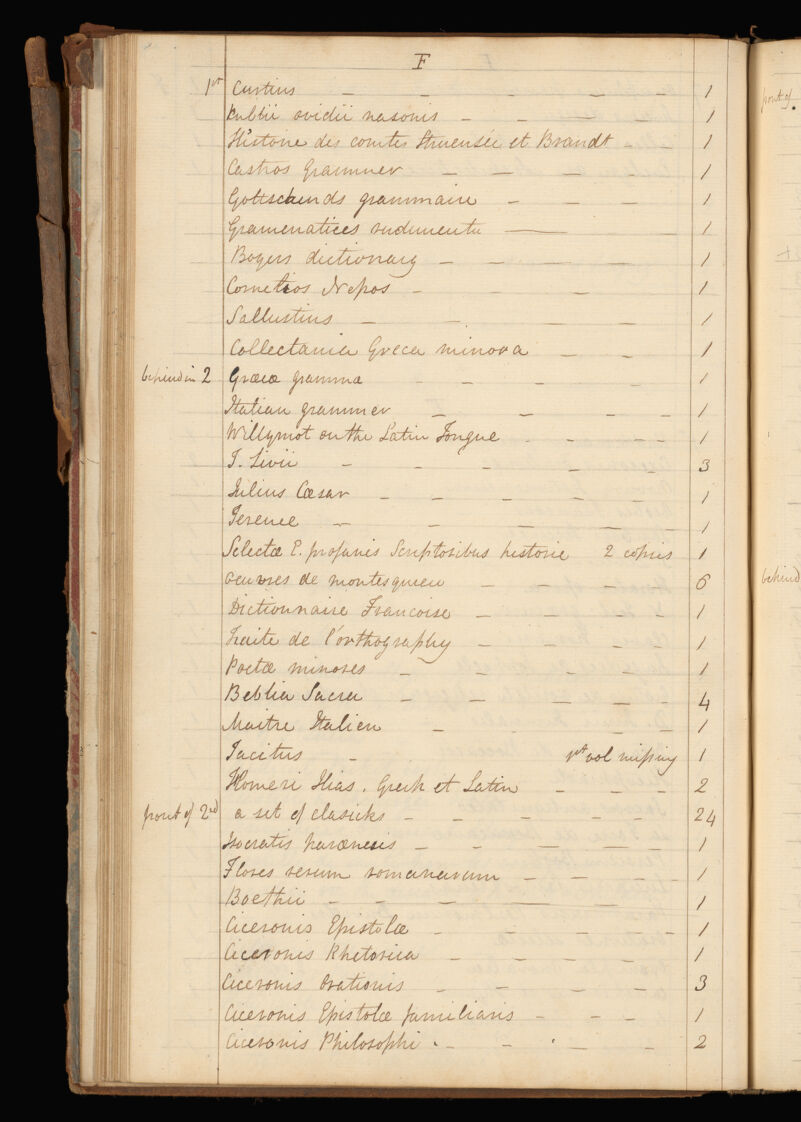 F
1st Curtius - - - - - 1
Publii ovidii nasonis - - - - 1
Histoire des comtes Struensée et Brandt - - 1
Castros Grammer - - - - 1
Gottscheinds grammaire - - - - 1
Gramenatices rudimenta - - 1
Bogers dictionary - - - - - 1
Cornelios Nepos - - - - - 1
Sallustius - - - - 1
Collectania Greca minora - - - 1
behind in 2 Græca gramma - - - - 1
Italian grammer - - - - 1
Willymot on the Latin Tongue - - - 1
T. Livii - - - - - - 3
Julius Cæsar - - - - - 1
Terence - - - - - 1
Selectæ E. profanis Scriptoribus historie 2 copies 1
oeuvres de montesquieu - - - - 6
Dictionnaire Francoise - - - - 1
Traite de l'orthography - - - - 1
Poetæ minores - - - - - 1
Beblia Sacra - - - - - 4
Maitre Italien - - - - - 1
Tacitus - 1st vol missing 1
Homeri Ilias. Greek et Latin - - - 2
front of 2nd a set of clasicks - - - - - 24
Isocratis parænesis - - - - - 1
Flores rerum romanarum - - - - 1
Boethii - - - - - 1
Ciceronis Epistolæ - - - - - 1
Ciceronis Rhetorica - - - - - 1
Ciceronis Orationis - - - - - 3
Ciceronis Epistolæ familiaris - - - 1
Ciceronis Philosophi - - - - 2
front of
behind